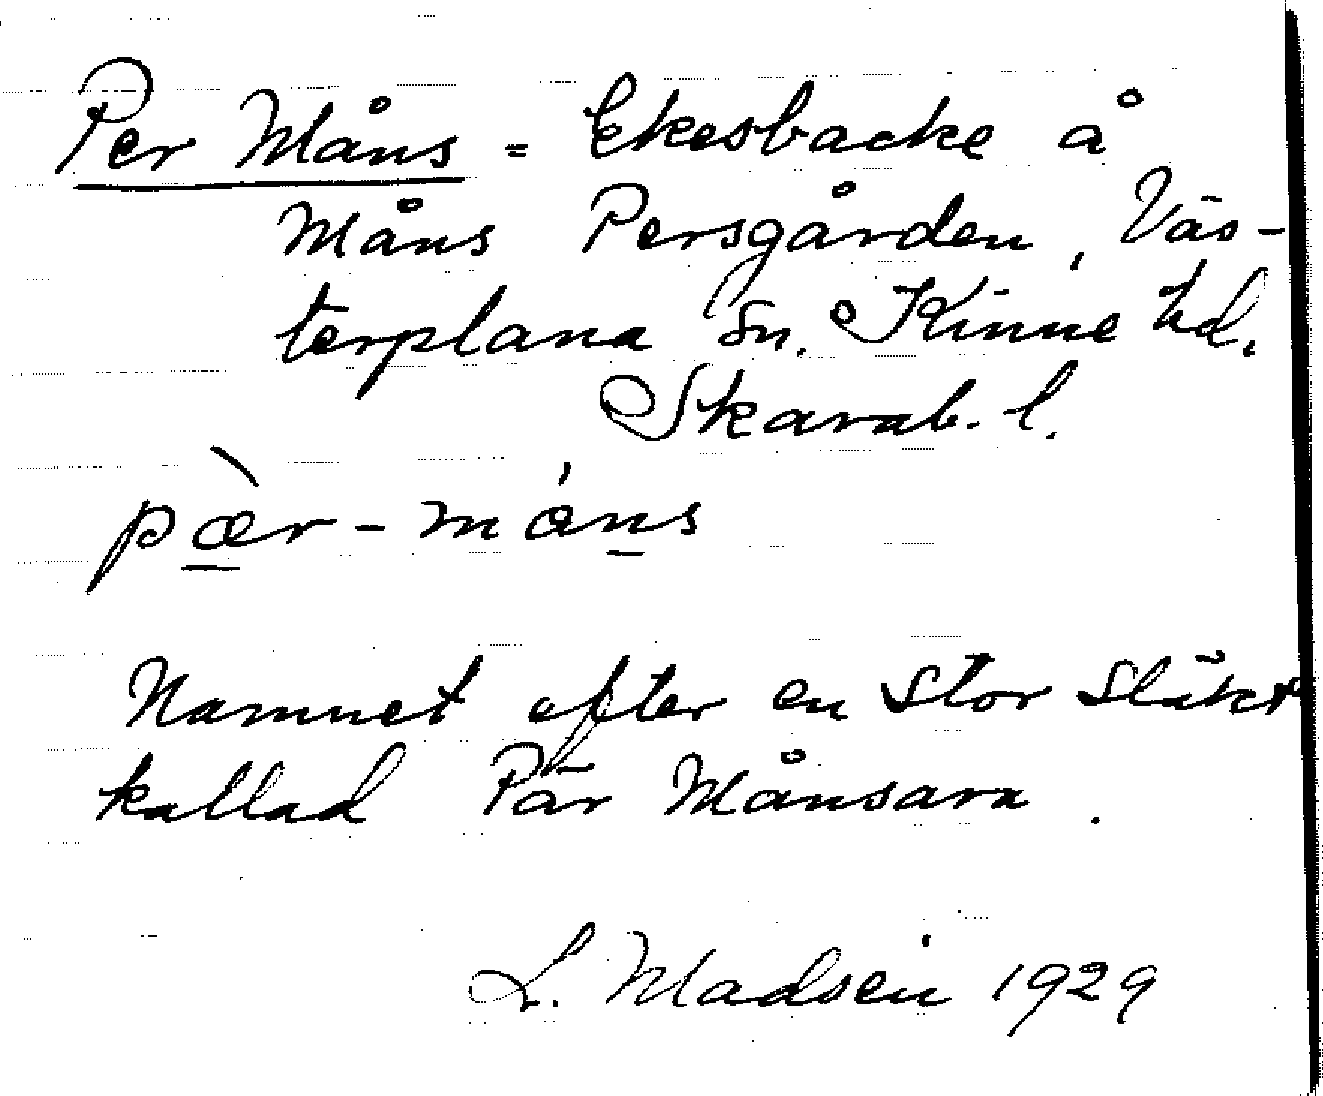 Per Måns = Ekesbacke å
Måns Persgården, Väs-
terplana sn. Kinne hd.
Skarab. l.
pæ̀r-má̊ns
Namnet efter en stor släkt
kallad Pär Månsara.
L. Madsen 1929